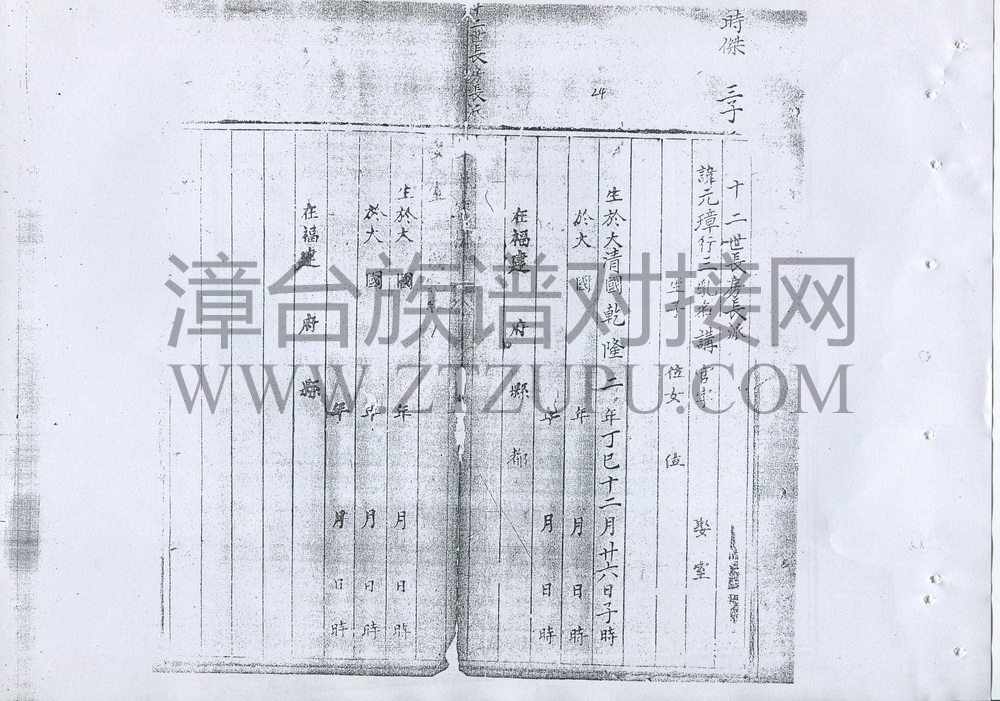 時傑 三子
十二世長房長派
諱元璋行三乳名講 官 娶 室
生子 位女 位
生於大清國乾隆二年丁巳十二月廿六日子時
於大 國 年 月 日 時
年 月 日 時
在福建 府 縣 都
24
十二世長房長派
生於大 國 年 月 日 時
於大 國 年 月 日 時
年 月 日 時
在福建 府 縣
漳台族谱对接网
WWW.ZTZUPU.COM